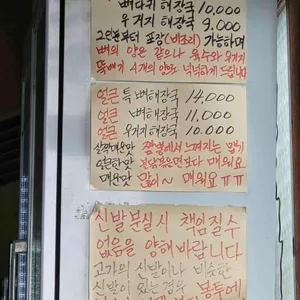 뼈다귀 해장국 10,000
우거지 해장국 9,000
2인분부터 포장(비조리) 가능하며
뼈의 양은 같으나 육수와 우거지
뚝배기 4개의 양으로 넉넉하게 드립니다
얼큰 특 뼈해장국 14,000
얼큰 뼈해장국 11,000
얼큰 우거지해장국 10,000
살짝매운맛 짬뽕에서 느껴지는 맵기
얼큰한맛 불닭볶음면보다 매워요
매운맛 많이~ 매워요 ㅠㅠ
신발 분실시 책임질수
없음을 양해바랍니다
고가의 신발이나 비슷한
신발이 있는경우 봉투에